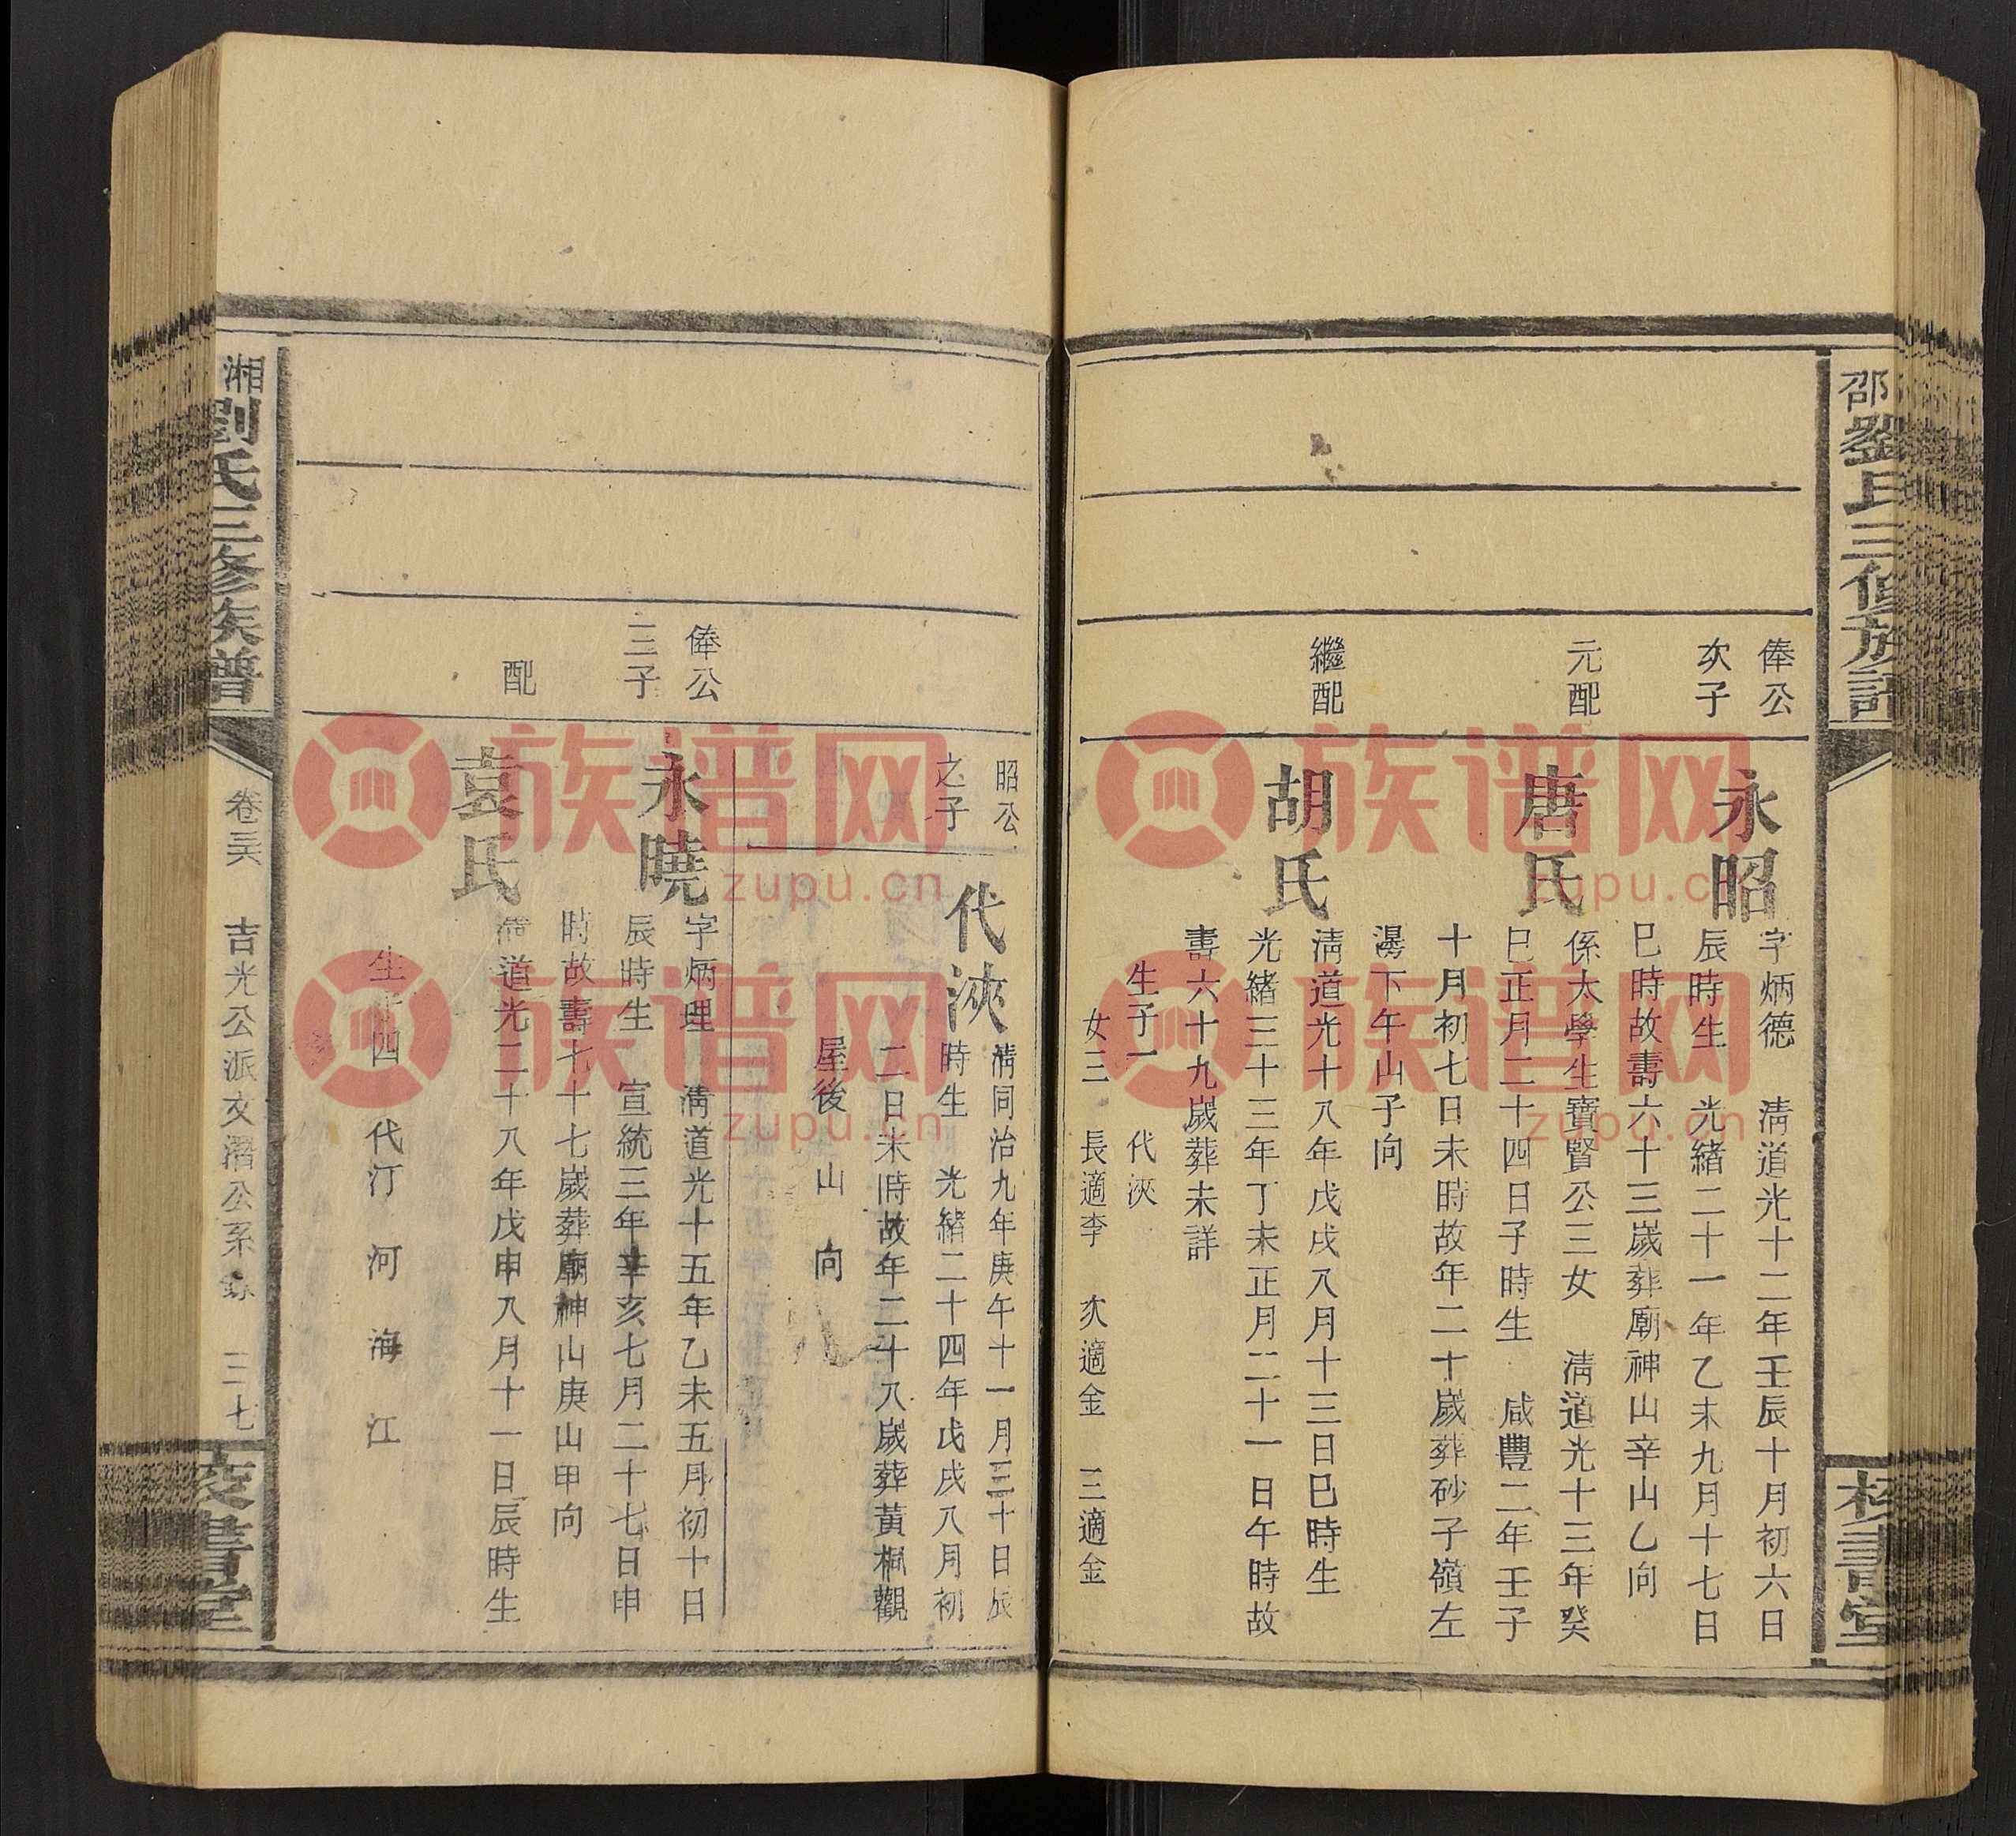 邵
劉氏三修族譜
俸公
次子
永昭
字炳德 淸道光十二年壬辰十月初六日
辰時生 光緒二十一年乙未九月十七日
巳時故壽六十三歲葬廟神山辛山乙向
元配
唐氏
係太學生寶賢公三女 淸道光十三年癸
巳正月二十四日子時生 咸豐二年壬子
十月初七日未時故年二十歲葬砂子嶺左
灣下午山子向
繼配
胡氏
淸道光十八年戊戌八月十三日巳時生
光緒三十三年丁未正月二十一日午時故
壽六十九歲葬未詳
生子一 代浹
女三 長適李 次適金 三適金
昭公
之子
代浹
淸同治九年庚午十一月三十日辰
時生 光緒二十四年戊戌八月初
二日未時故年二十八歲葬黃楓觀
屋後 山 向
俸公
三子
永曉
字炳理 淸道光十五年乙未五月初十日
辰時生 宣統三年辛亥七月二十七日申
時故壽七十七歲葬廟神山庚山甲向
配
袁氏
淸道光二十八年戊申八月十一日辰時生
生子四 代汀 河 海 江
湘
劉氏三修族譜
卷三六 吉光公派文潛公系 三七
族谱网
zupu.cn
族谱网
zupu.cn
族谱网
zupu.cn
族谱网
zupu.cn